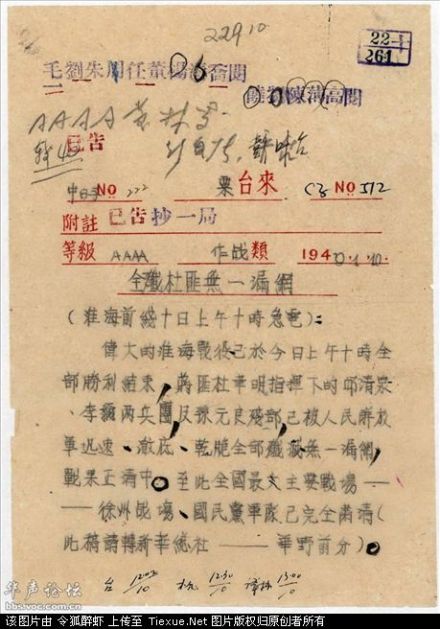 22910
22
261
毛劉朱周任董楊
陳薄高閱
AAAA
已告
中 NO 222 票台來 NO 512
附註 已告抄一局
等級 AAAA 作战類 194
全殲杜匪無一漏網
(淮海前綫十日上午十時急電):
偉大的淮海戰役已於今日上午十時全
部勝利結束,蔣匪杜聿明指揮下的邱清泉
、李彌两兵團及孫元良殘部已被人民解放
軍迅速、澈底、乾脆全部殲滅無一漏網,
戰果正清中。至此全國最大主要戰場—
—徐州战場、國民黨軍隊已完全肅清(
此稿請轉新华總社——華野前分)。
台 1202/10 杭 1230/10 1300/10
华声论坛
bbs.voc.com.cn
该图片由 令狐醉虾 上传至 Tiexue.Net 图片版权归原创者所有